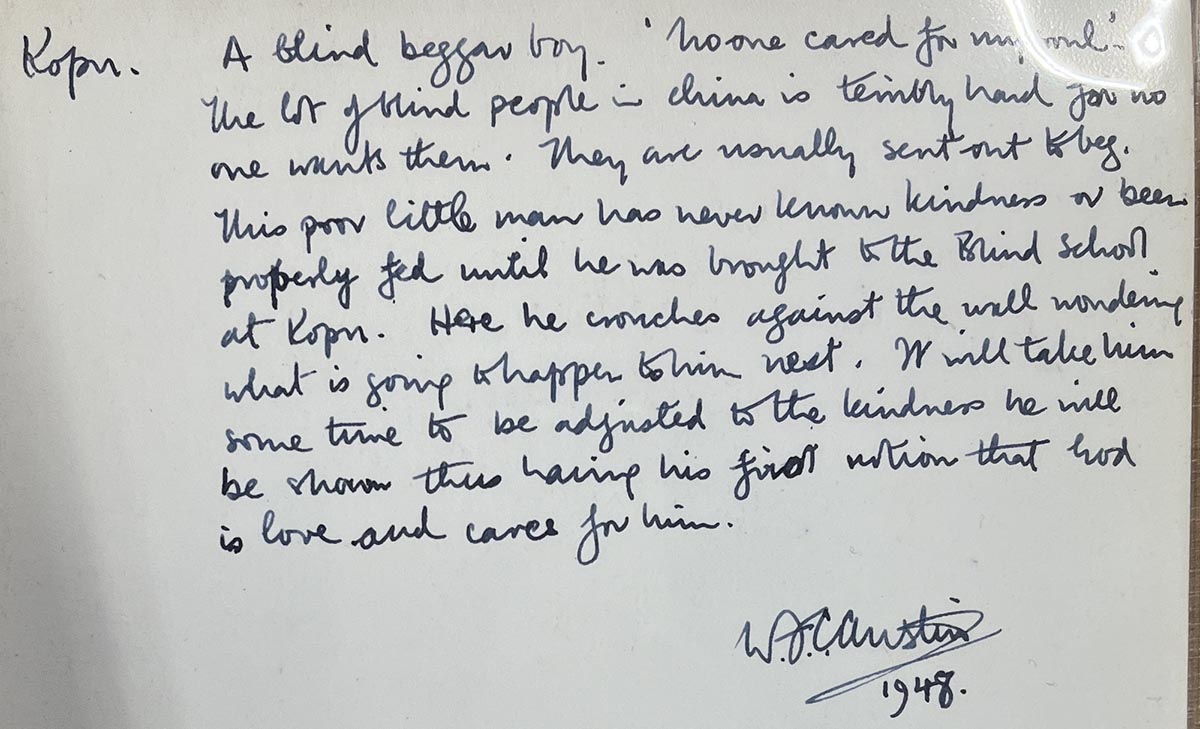 Kopu. A blind beggar boy. 'No one cared for my soul'-
The lot of blind people in China is terribly hard for no
one wants them. They are usually sent out to beg.
This poor little man has never known kindness or been
properly fed until he was brought to the Blind School
at Kopu. Here he crouches against the wall wondering
what is going to happen to him next. It will take him
some time to be adjusted to the kindness he will
be shown thus having his first notion that God
is love and cares for him.
W.J.C. Austin
1948.